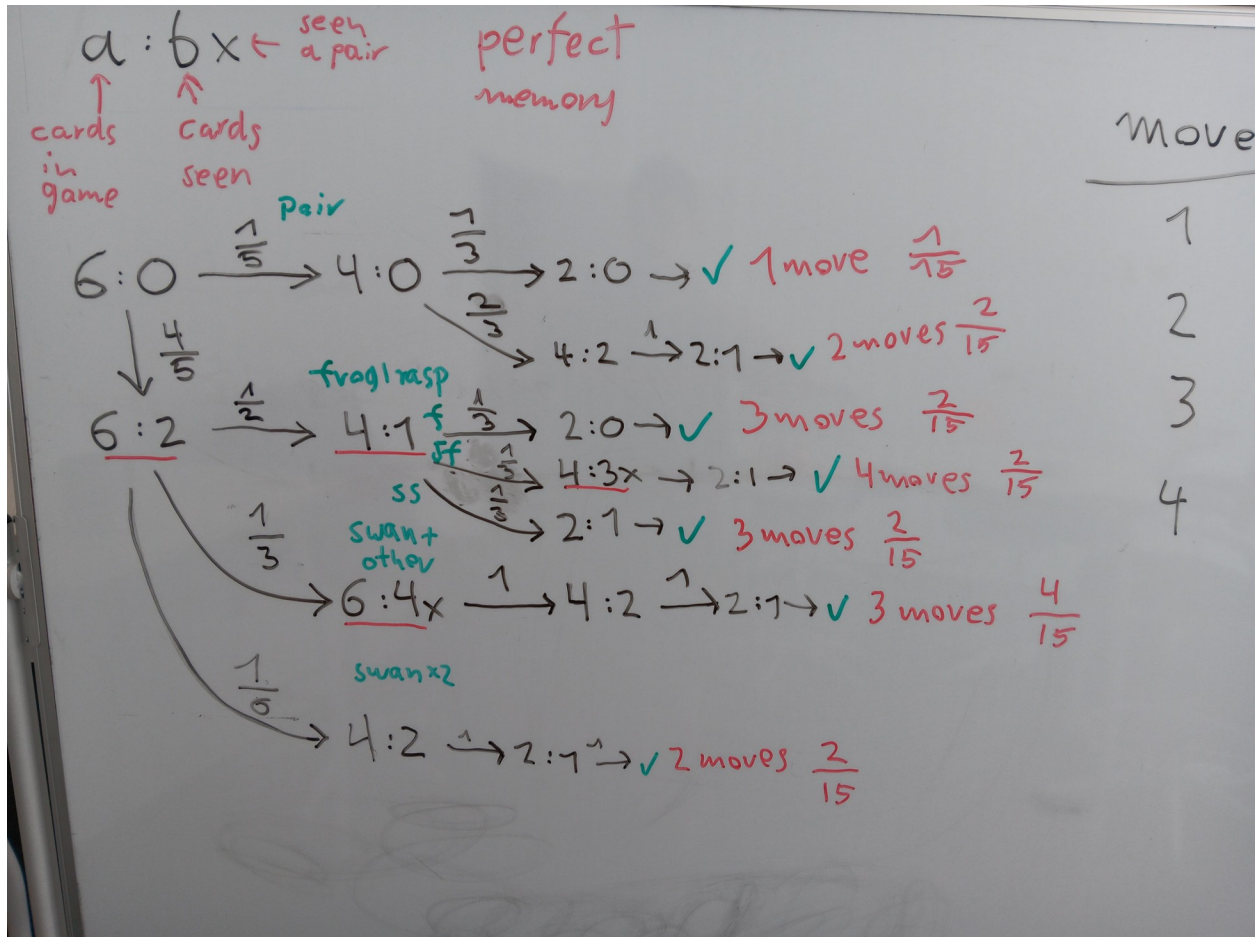 a : bx ← seen a pair
perfect memory
cards in game
cards seen
move
pair
6:0 1/5 → 4:0 1/3 → 2:0 → ✓ 1 move 1/15
1
2/3 4:2 1 → 2:1 → ✓ 2 moves 2/15
2
4/5
frog|rasp
6:2 1/2 → 4:1 f 1/3 → 2:0 → ✓ 3 moves 2/15
3
sf 1/3 4:3x → 2:1 → ✓ 4 moves 2/15
4
ss 1/3 2:1 → ✓ 3 moves 2/15
1/3
swan +
other
6:4x 1 → 4:2 1 → 2:1 → ✓ 3 moves 4/15
swan x2
4:2 1 → 2:1 1 → ✓ 2 moves 2/15